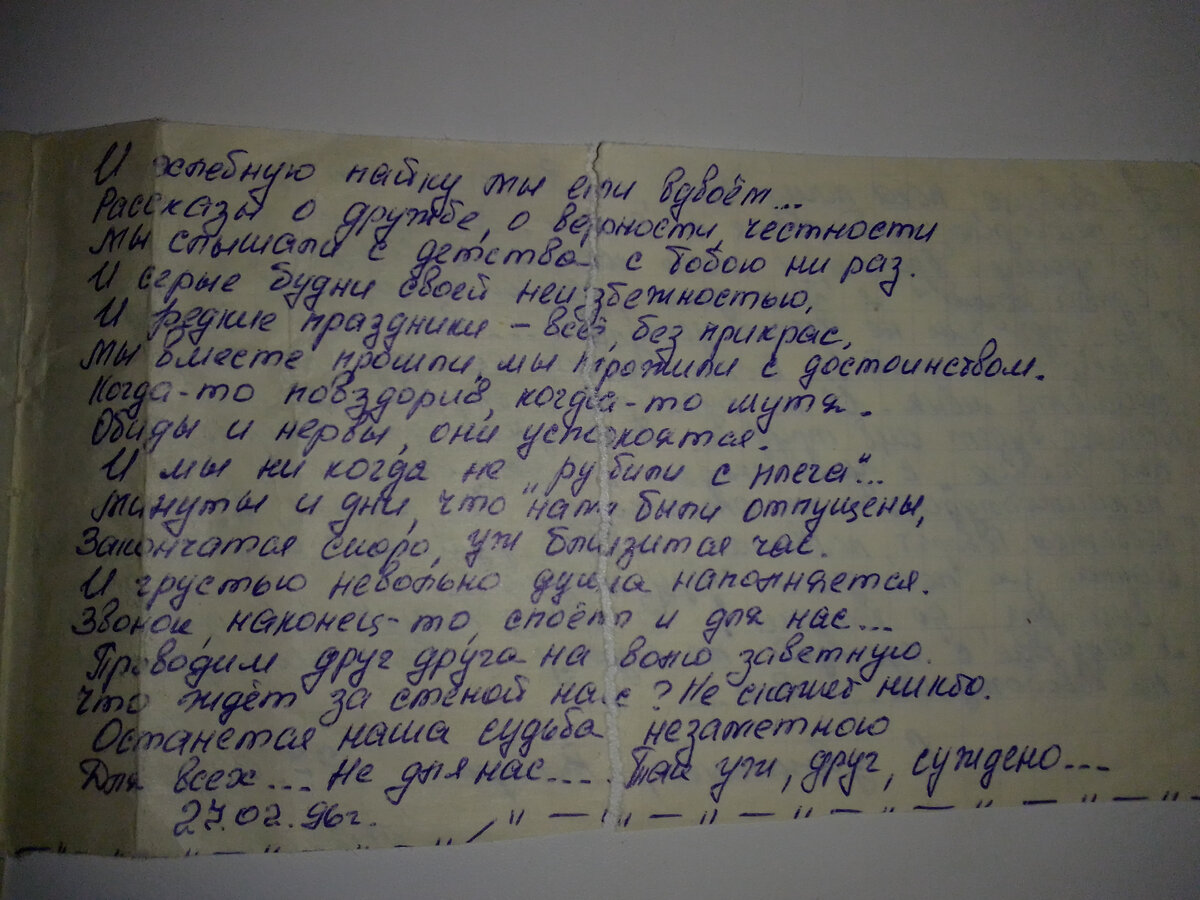 И хлебную пайку мы ели вдвоём...
Рассказы о дружбе, о верности, честности
Мы слышали с детства с тобою ни раз.
И серые будни своей неизбежностью,
И редкие праздники – всё, без прикрас,
Мы вместе прошли, мы прожили с достоинством.
Когда-то повздорив, когда-то шутя.
Обиды и нервы, они успокоятся.
И мы ни когда не „рубили с плеча"...
Минуты и дни, что нам были отпущены,
Закончатся скоро, уж близится час.
И грустью невольно душа наполняется.
Звонок, наконец-то, споёт и для нас...
Проводим друг друга на волю заветную.
Что ждёт за стеной нас? Не скажет никто.
Останется наша судьба незаметною
Для всех... Не для нас.... Так уж, друг, суждено...
27.02.96г.